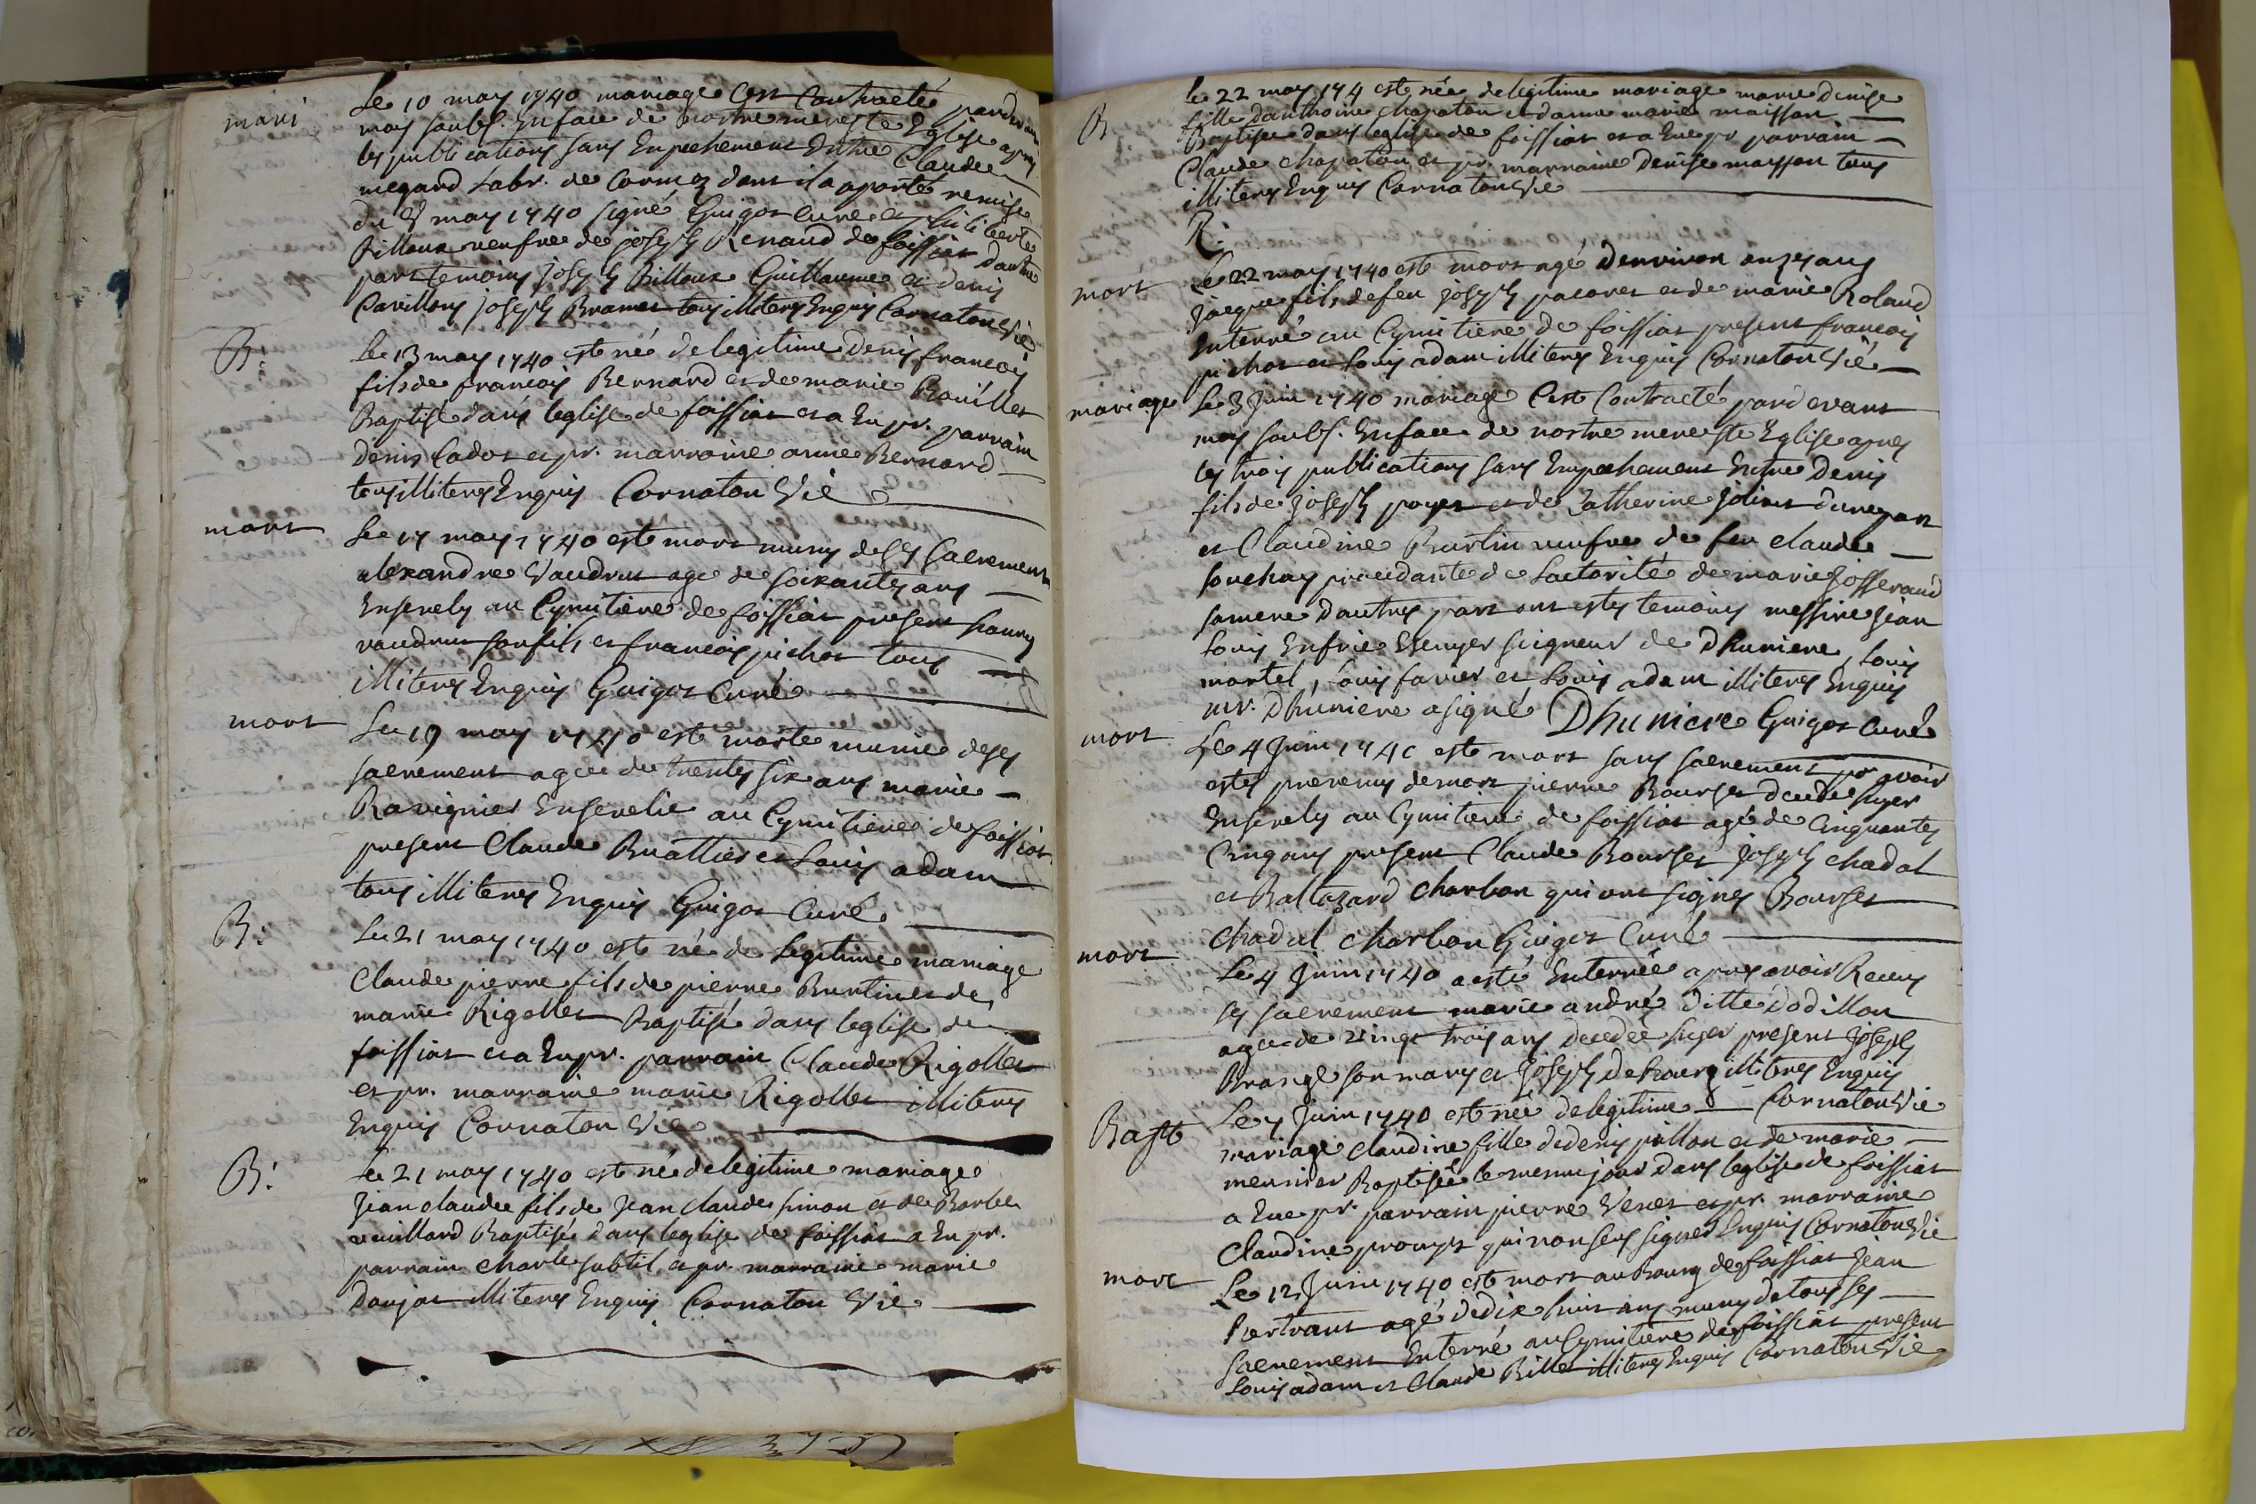 mari
Le 10 may 1740 mariage C'est Contracté pardevan
moy soubs. En face de nostre mere ste Eglise apres
les publications sans Empechement Entre Claude
megard Labr. de Cormoz dont il a aporté remise
du 8 may 1740 signé Guigot Curé et filiberte
Billoux veufve de joseph Renaud de foissiat dautre
part temoins joseph Billoux Guillaume et denis
Cavillons joseph Bramet tous illiteres Enquis Cornaton Vié
B:
Le 13 may 1740 est né de legitime denis francois
fils de francois Bernard et de marie Bouillet
Baptisé dans leglise de foissiat et a Eu pr. parrain
denis Cadot et pr. marraine anne Bernard
tous illiteres Enquis Cornaton Vié
mort
Le 17 may 1740 est mort muny de ses sacrement
alexandre Vaudrut age de soixantes ans
Ensevely au Cymitiere de foissiat present
vaudrut son fils et francois pichot tous
illiteres Enquis Guigot Curé
mort
Le 19 may 1740 est morte munie de ses
sacrement agee de trentes six ans marie
Ravignier Ensevelie au Cymitiere de foissiat
present Claude Buattier et Louis adam
tous illiteres Enquis Guigot Curé
B:
Le 21 may 1740 est né de Legitime mariage
Claude pierre fils de pierre Burtin et de
marie Rigollet Baptisé dans leglise de
foissiat et a Eu pr. parrain Claude Rigollet
et pr. marraine marie Rigollet illiteres
Enquis Cornaton Vié
B:
Le 21 may 1740 est né de legitime mariage
Jean claude fils de Jean claude simon et de Barbe
vuillard Baptisé dans leglise de foissiat a Eu pr.
parrain charle subtil et pr. marraine marie
Danjat illiteres Enquis Cornaton Vié
B
Le 22 may 174 est née de legitime mariage marie denise
fille danthoine chapaton et danne marie maisson
Baptisee dans leglise de foissiat et a Eue pr parrain
Claude chapaton et pr. marraine denise maysson tous
illiteres Enquis Cornaton Vié
R:
mort
Le 22 may 1740 est mort agé denviron onzes ans
jacque fils de feu joseph pacoret et de marie Roland
Enterré au Cymitiere de foissiat present francois
pichot et Louis adam illiteres Enquis Cornaton Vié
mariage
Le 3 Juin 1740 mariage C'est Contracté pardevant
moy soubs. En face de nostre mere Ste Eglise apres
les trois publications sans Empechement Entre denis
fils de joseph poyet et de Catherine joliet dune part
et Claudine Burtin veufve de feu claude
souchay procedante de Lactorité de marie josserand
sa mere dautres part ont estes temoins messire jean
Louis Enfrie Escuyer seigneur de Dhuniere, Louis
martel, Louis favier et Louis adam illiteres Enquis
mr. Dhuniere a signé Dhuniere Guigot Curé
mort
Le 4 Juin 1740 est mort sans sacrement pr avoir
estés prevenus de mort pierre Bourget decedé hyer
Ensevely au Cymitiere de foissiat agé de Cinquantes
Cinq ans present Claude Bourget joseph chadal
et Baltazard Charbon qui ont signes Bourget
Chadal Charbon Guigot Curé
mort
Le 4 juin 1740 a esté Enterrée apres avoir Receu
ses sacrement marie andré ditte dodillon
agee de vingt trois ans decedee hyer present joseph
Brangé son mary et joseph debourg illiteres Enquis
Cornaton Vié
Bapt
Le 7 Juin 1740 est née de legitime
mariage Claudine fille de denis pillon et de marie
meunier Baptisée le meme jour dans leglise de foissiat
a Eue pr. parrain pierre Veret et pr. marraine
Claudine prompt qui non sceus signer Enquis Cornaton Vié
mort
Le 12 Juin 1740 est mort au Bourg de foissiat Jean
Bertrant agé de dix huit ans muny de tous ses
sacrement Enterré au Cymitiere de foissiat present
Louis adam et Claude Billet illiteres Enquis Cornaton Vié